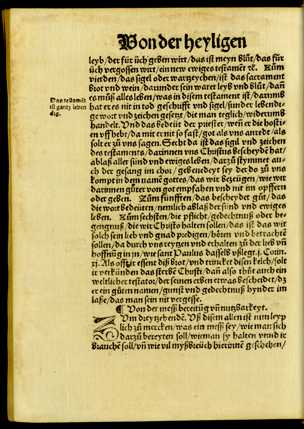 Von der heyligen
leyb / der für üch geben wirt / das ist meyn blůt / das für
üch vergossen wirt / ein new ewiges testamet ꝛc. Zům
vierden / das sigel oder wartzeychen / ist das sacrament
brot vnd wein / darunder sein warer leyb vnd blůt / dañ
es můß alles leben / was in disem testament ist / darumb
hat er es nit in tod geschrifft vnd sigel / sunder lebendi-
ge wort vnd zeychen gesetzt / die man teglich widerumb
handelt. Vnd das bedeüt der priester / wen er die hosti-
en vff hebt / da mit er nit so fast / got als vns anredt / als
solt er zů vns sagen. Seht da ist das sigil vnd zeychen
des testaments / darinnen vns Christus bescheydē hat /
ablaß aller sünd vnd ewiges leben / dar zů stymmet au-
ch der gesang im chor / gebenedeyt sey der da zů vns
kompt in dem namē gottes / das wir bezeügen / wie wir
darinnen güter von got empfahen vnd nit im opffern
oder geben. Zům fünfften / das bescheyden gůt / das
die wort bedeuten / nemlich ablaß der sünd vnd ewiges
leben. Zům sechsten / die pflicht / gedechtnuß oder be-
gengnuß / die wir Christo halten sollen / das ist das wir
solch sein lieb vnd gnad predigen / hören vnd betrachtē
sollen / da durch vns reytzen vnd erhalten zů der lieb vñ
hoffnung in jn / wie sant Paulus dasselb vßlegt. j. Corin.
xj. Als offt jr essent diß brot / vnd trincket disen kelch / solt
ir verkünden das sterbē Christi / dañ also thůt auch ein
weltlicher testator / der seinen erben etwas bescheydet / dz
er ein gůten namen / gunst vnd gedechtnuß hynder im
laße / das man sein nit vergesse.
Das testamēt
ist gantz leben
dig.
¶ Von der mess bereitūg vñ nutzbarkeyt.
Zum dryzehendē. Uß disem allen ist nun leyp
lich zů mercken / was ein mess sey / wie man sich
darzů bereyten soll / wie man sy halten vnd ir
brauchē soll / vñ wie vil myßbreüch hierinnē gschehen /